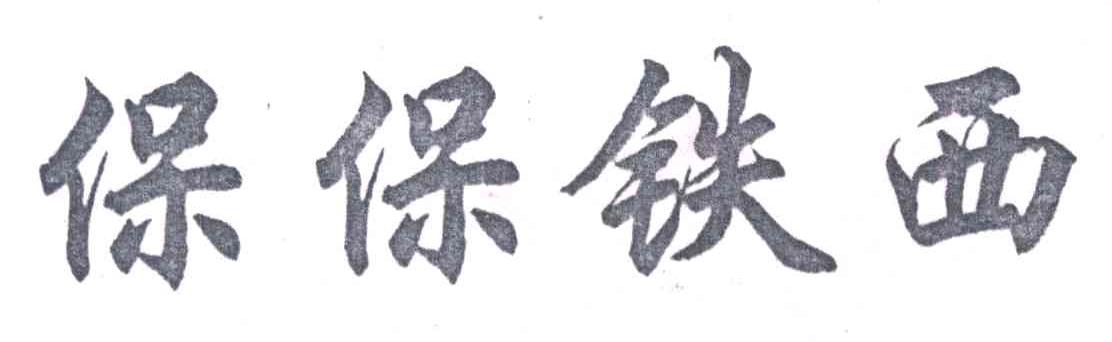 保保铁西